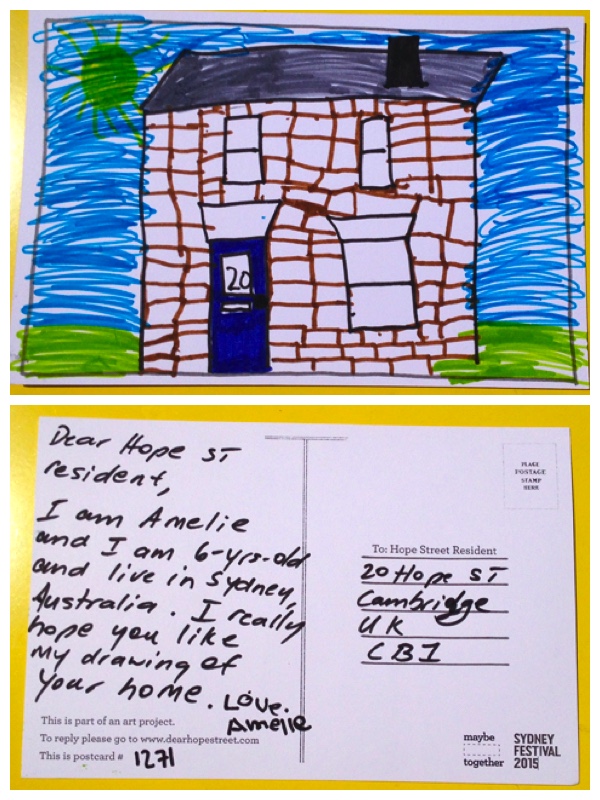 20
Dear Hope ST
resident,
I am Amelie
and I am 6-yrs-old
and live in Sydney,
Australia. I really
hope you like
my drawing of
your home. Love.
Amelie
This is part of an art project.
To reply please go to www.dearhopestreet.com
This is postcard # 1271
PLACE
POSTAGE
STAMP
HERE
To: Hope Street Resident
20 Hope ST
Cambridge
UK
CB1
maybe
together
SYDNEY
FESTIVAL
2015